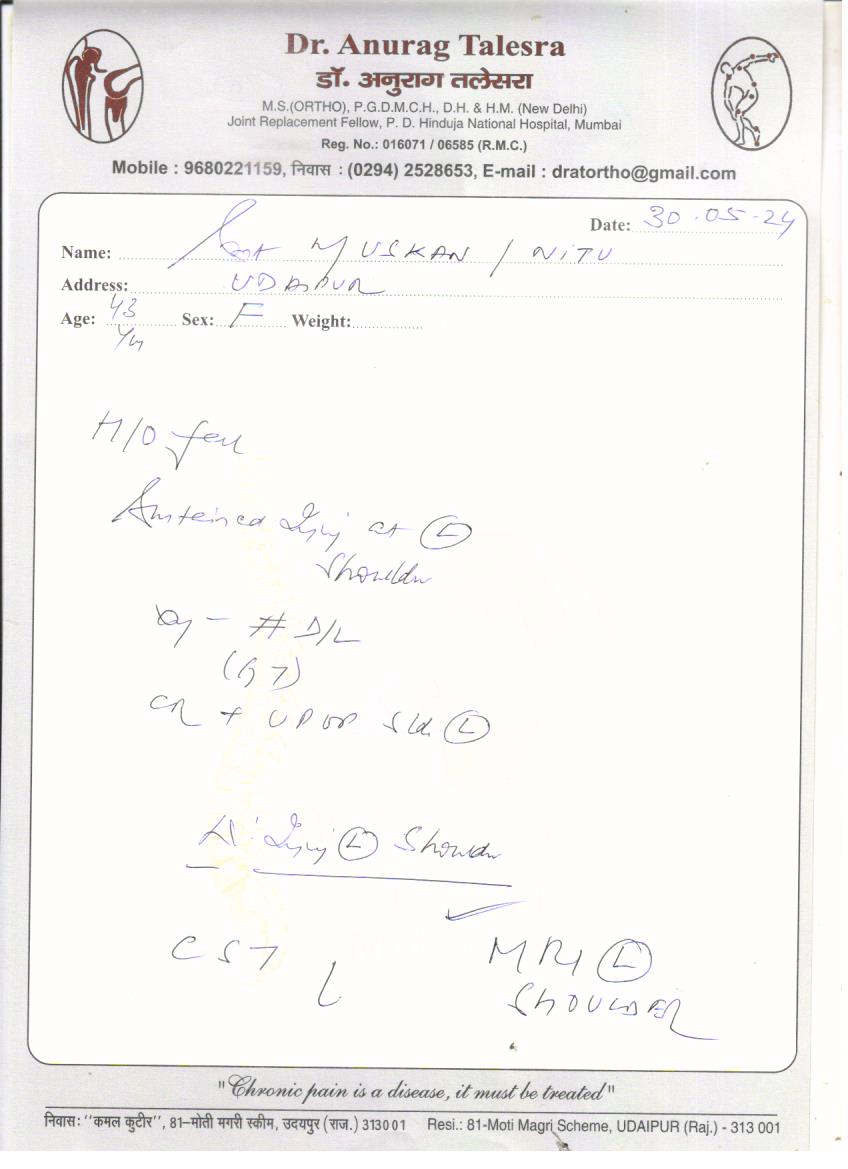 Dr. Anurag Talesra
डॉ. अनुराग तलेसरा
M.S.(ORTHO), P.G.D.M.C.H., D.H. & H.M. (New Delhi)
Joint Replacement Fellow, P. D. Hinduja National Hospital, Mumbai
Reg. No.: 016071 / 06585 (R.M.C.)
Mobile : 9680221159, निवास : (0294) 2528653, E-mail : dratortho@gmail.com
Date: 30.05.24
Name: MUSKAN / NITU
Address: UDAIPUR
Age: 43 Sex: F Weight:
H/O fell
Sustained Injury at (L)
Shoulder
# D/L
(GT)
(L)
Injury (L) Shoulder
CST MRI (L)
SHOULDER
"Chronic pain is a disease, it must be treated"
निवास: "कमल कुटीर", 81–मोती मगरी स्कीम, उदयपुर (राज.) 313001 Resi.: 81-Moti Magri Scheme, UDAIPUR (Raj.) - 313 001